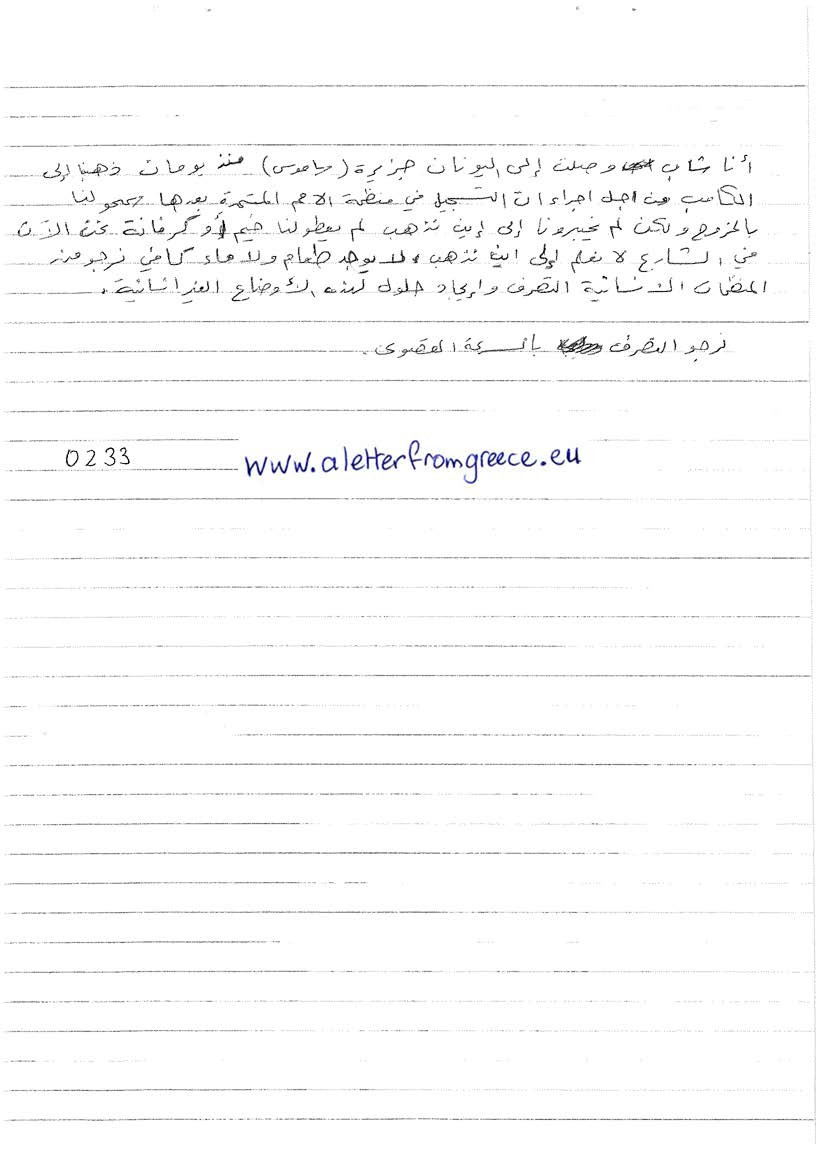 أنا شاب وصلت إلى اليونان جزيرة (ساموس) منذ يومان ذهبنا إلى
الكامب من اجل اجراءات التسجيل في منظمة الامم المتحدة بعدها سمحولنا
بالخروج ولكن لم يخبرونا إلى إين نذهب لم يعطولنا خيم أو كرفانة نحن الآن
في الشارع لا نعلم إلى اين نذهب ولا يوجد طعام ولا ماء كافي نرجو من
المنظمات الانسانية التصرف وايجاد حلول لهذه الأوضاع الغير انسانية.
نرجو التصرف بالسرعة القصوى.
0233 www.aletterfromgreece.eu